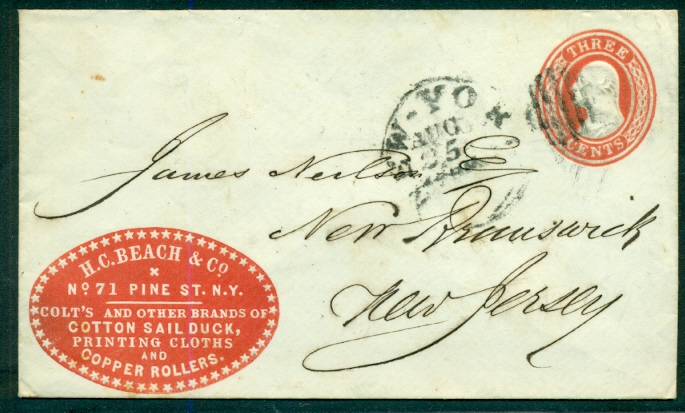 THREE
CENTS
NEW-YORK
AUG
25
James Neilson Esq
New Brunswick
New Jersey
H.C. BEACH & Co
No 71 PINE ST. N.Y.
COLT'S AND OTHER BRANDS OF
COTTON SAIL DUCK,
PRINTING CLOTHS
AND
COPPER ROLLERS.